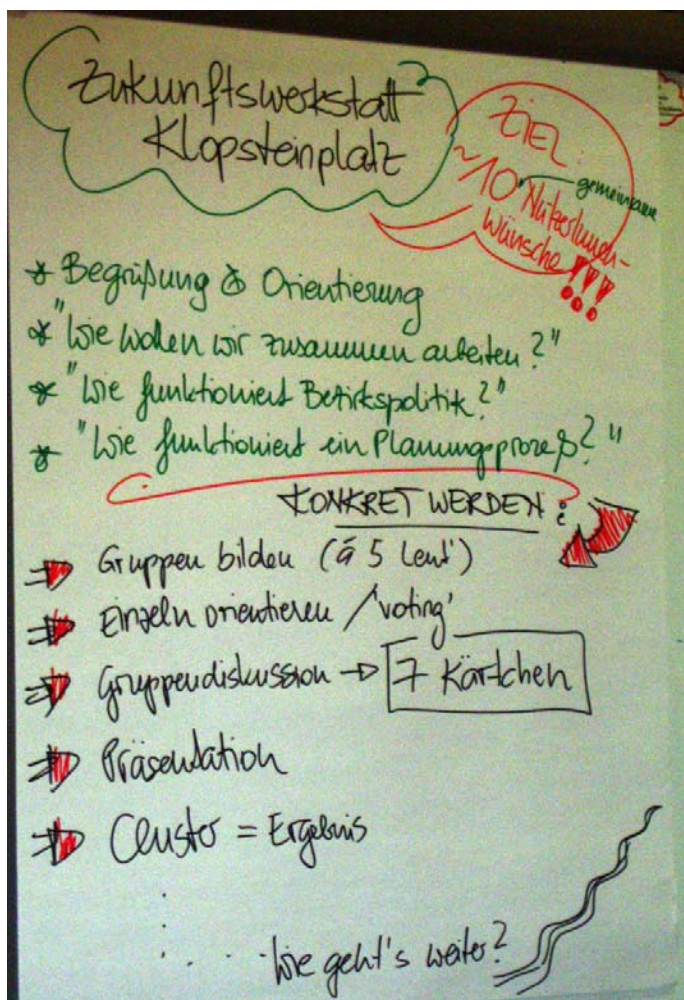 Zukunftswerkstatt
Klopsteinplatz
ZIEL:
~10 gemeinsame
NutzerInnen-
wünsche!!!
* Begrüßung & Orientierung
* "Wie wollen wir zusammen arbeiten?"
* "Wie funktioniert Bezirkspolitik?"
* "Wie funktioniert ein Planungsprozeß?"
KONKRET WERDEN:
Gruppen bilden (á 5 Leut')
Einzeln orientieren / 'voting'
Gruppendiskussion → 7 Kärtchen
Präsentation
Cluster = Ergebnis
Wie geht's weiter?